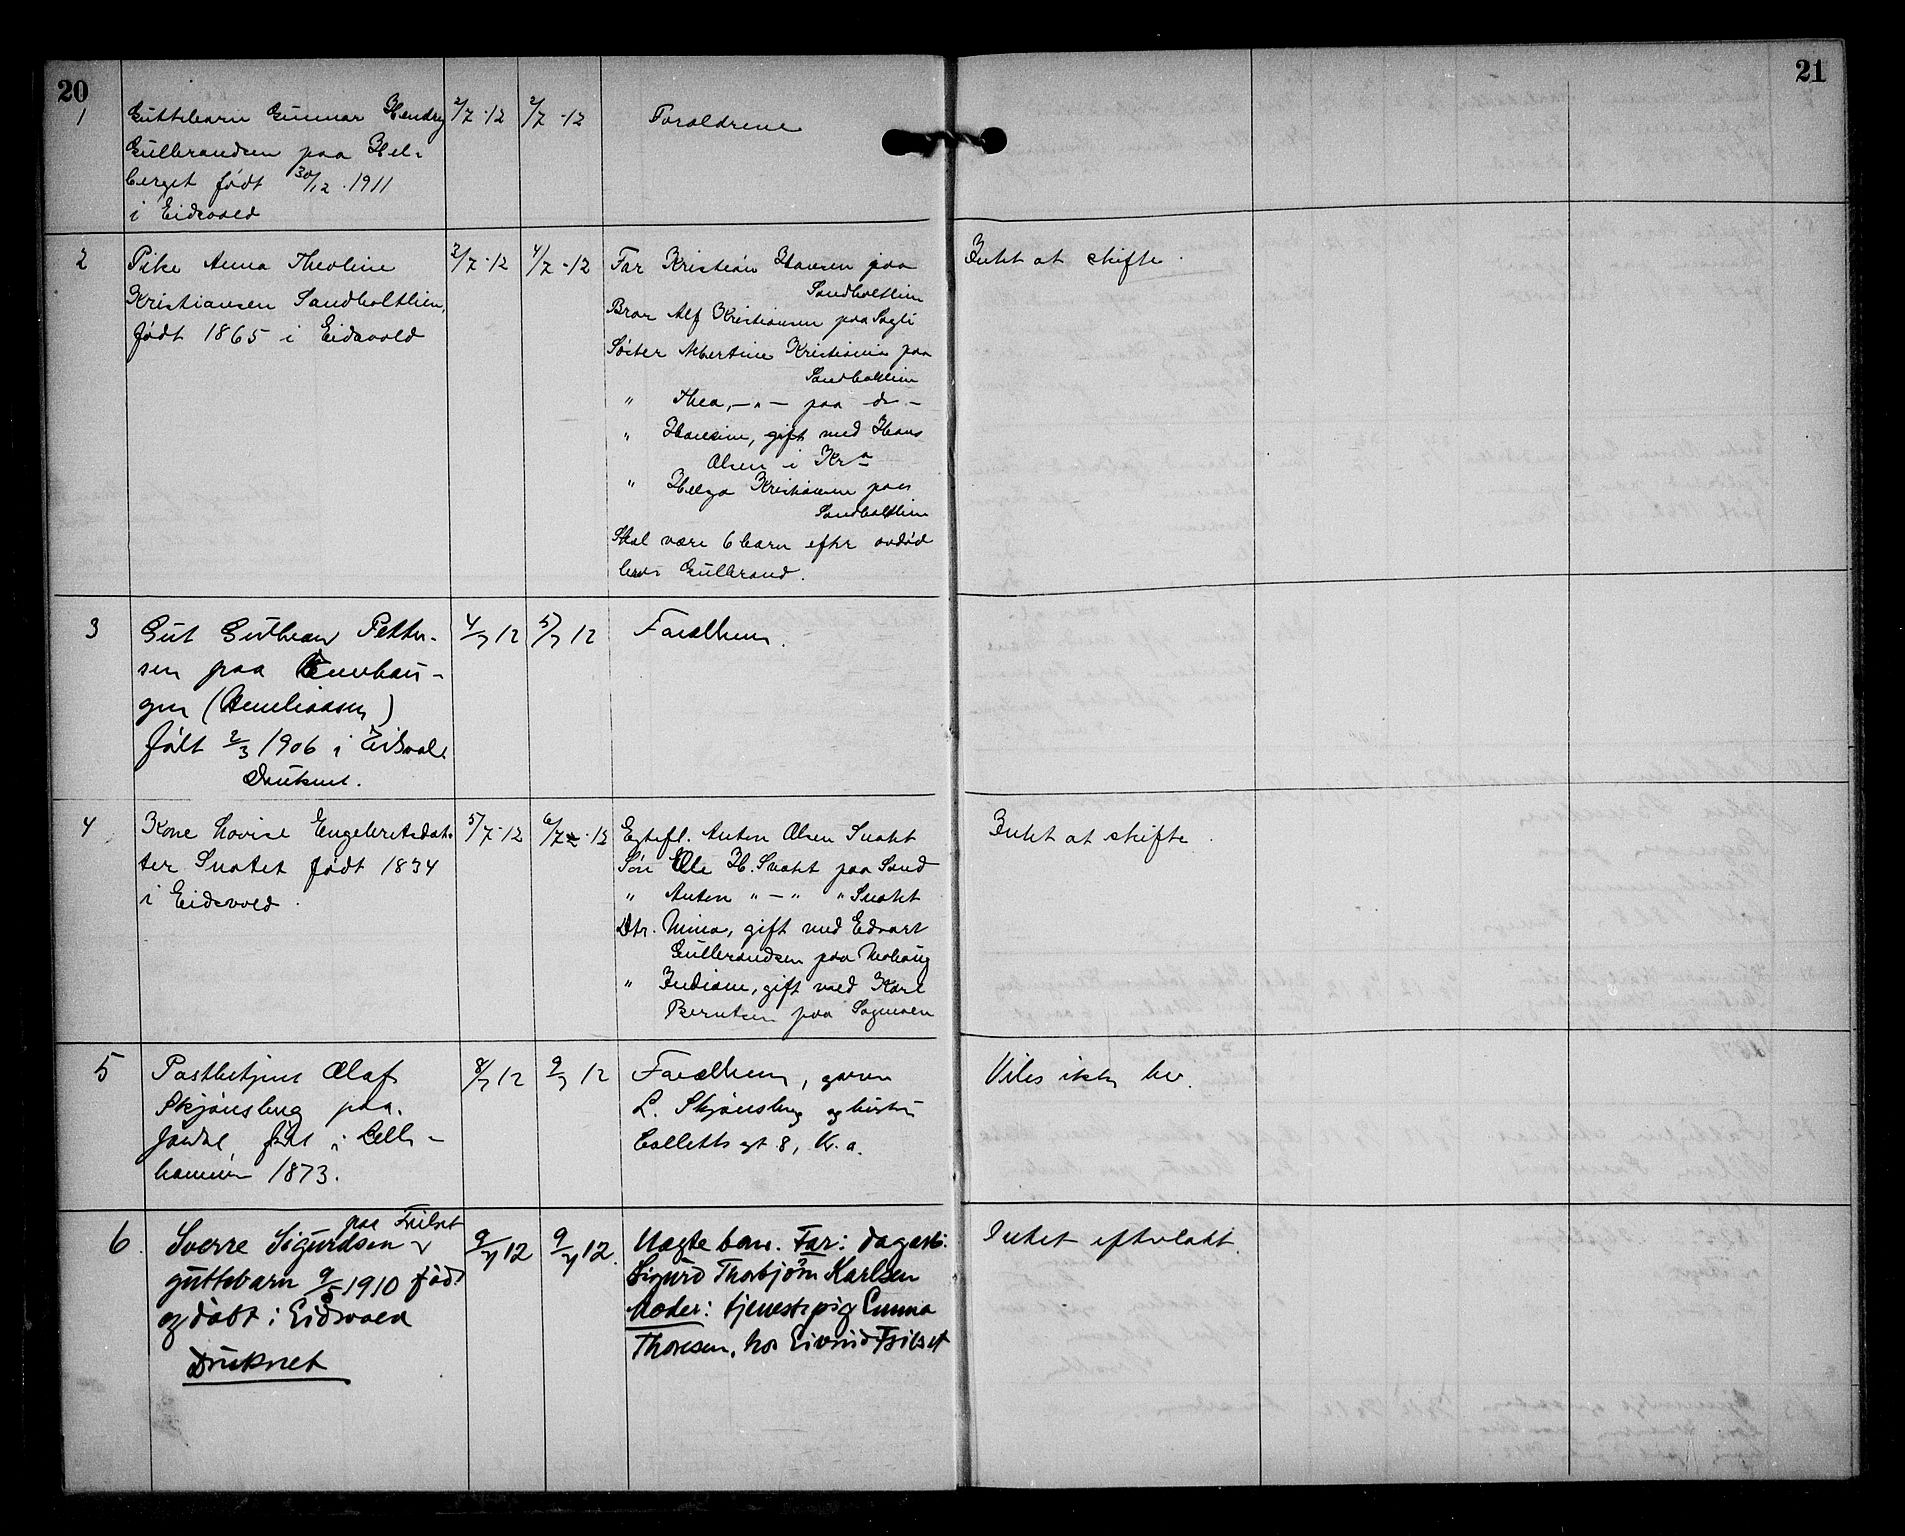 20
21
1
Guttebarn Gunnar Hendry
Gulbrandsen paa Hel-
berget født 30/12. 1911
i Eidsvold
2/7 - 12
2/7 - 12
Foraldrene
2
Pike Anna Theoline
Kristiansen Sandholtlien,
født 1865 i Eidsvold
2/7 - 12
4/7 - 12
Far Kristian Hansen paa
Sandholtlien
Bror Alf Kristiansen paa
Søster Albertine Kristiansen paa
Sandholtlien
" Thea, - " - paa - do -
" Hansine, gift med Hans
Olsen i Kra
" Helga Kristiansen paa
Sandholtlien
Skal være 6 barn efter avdød
bror Gulbrand.
Intet at skifte.
3
Gut Gulbrand Petter-
sen paa
gen
født 2/3 1906 i Eidsvold
Druknet.
4/7 12
5/7 12
Forældrene.
4
Kone Lovise Engebretsdat-
ter Snatet født 1834
i Eidsvold.
5/7 - 12
6/7 - 12
Egtefl. Anton Olsen Snatet
Søn Ole H. Snatet paa Sand
" Anton " - " " Snatet
Dtr. Mina, gift med Edvart
Gulbrandsen paa
" Indiane, gift med Karl
Berntsen paa Sagmoen
Intet at skifte.
5
Postbetjent Olaf
Skjønsberg paa
født i Lille-
hammer 1873.
8/7 12
9/7 12
Forældrene,
L. Skjønsberg og hustru
Colletts gt. 8, Kr.a.
Viles ikke her.
6.
paa Frilset
Sverre Sigurdsen
guttebarn 9/5 1910 født
og døbt i Eidsvold
Druknet
9/7 12
9/7 12.
Uægte barn. Far: dagarb.
Sigurd Thorbjørn Karlsen
Moder: tjenestepig Emma
Thoresen, hos Eivind Frilset
Intet efterlatt.